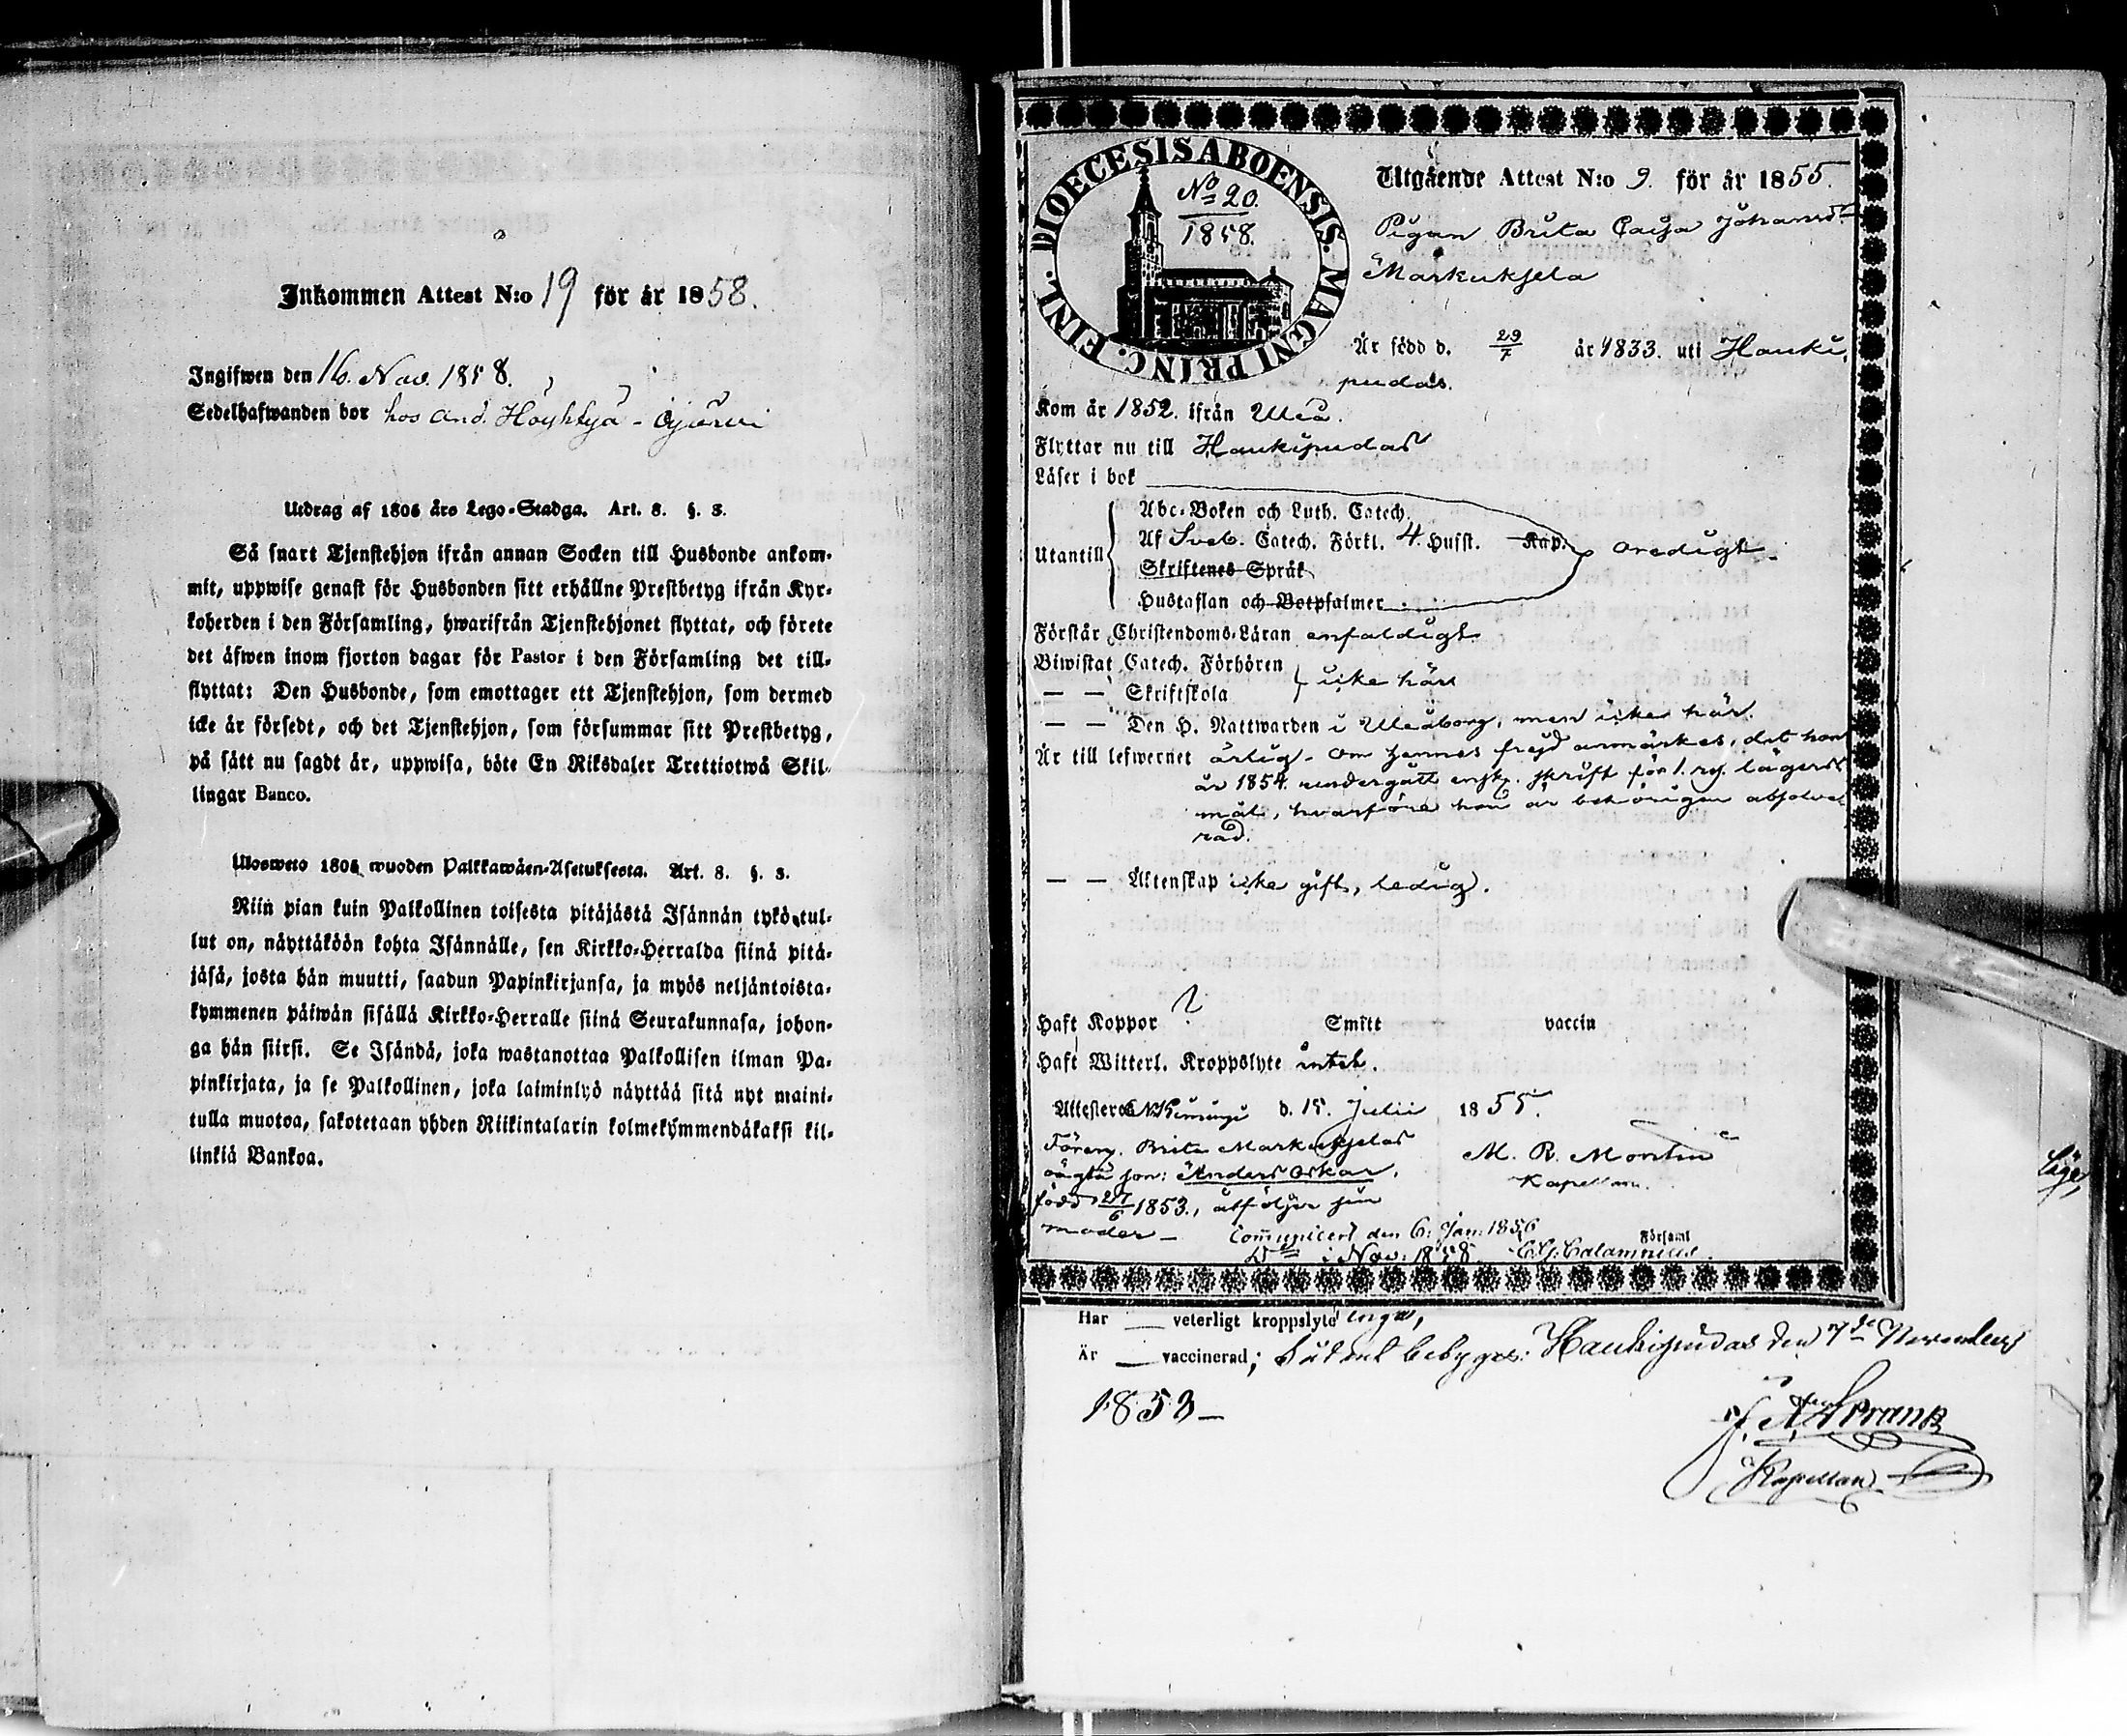 Inkommen Attest N:o 19 för år 1858.
Ingifwen den 16. Nov. 1858.
Sedelhafwanden bor hos And. Höyhtyä - Ojärvi
Utdrag af 1805 års Lego-Stadga. Art. 8. §. 3.
Så snart Tjenstehjon ifrån annan Socken till Husbonde ankom-
mit, uppwise genast för Husbonden sitt erhållne Prestbetyg ifrån Kyr-
koherden i den Församling, hwarifrån Tjenstehjonet flyttat, och förete
det äfwen inom fjorton dagar för Pastor i den Församling det till-
flyttat: Den Husbonde, som emottager ett Tjenstehjon, som dermed
icke är försedt, och det Tjenstehjon, som försummar sitt Prestbetyg,
på sätt nu sagdt är, uppwisa, böte En Riksdaler Trettiotwå Skil-
lingar Banco.
Ulosweto 1805 wuoden Palkkawäen-Asetuksesta. Art. 8. §. 3.
Niin pian kuin Palkollinen toisesta pitäjästä Isännän tykö tul-
lut on, näyttäköön kohta Isännälle, sen Kirkko-Herralda siinä pitä-
jäsä, josta hän muutti, saadun Papinkirjansa, ja myös neljäntoista-
kymmenen päiwän sisällä Kirkko-Herralle siinä Seurakunnasa, johon-
ga hän siirsi. Se Isändä, joka wastanottaa Palkollisen ilman Pa-
pinkirjata, ja se Palkollinen, joka laiminlyö näyttää sitä nyt maini-
tulla muotoa, sakotetaan yhden Riikintalarin kolmekymmendäkaksi kil-
linkiä Bankoa.
DIOECESIS ABOENSIS. MAGNI PRINC. FINL.
No 20.
1858.
Utgående Attest N:o 9. för år 1855.
Pigan Brita Caisa Johansdr
Markuksela
Är född d. 29/7 år 1833. uti Hauki-
pudas.
Kom år 1852. ifrån Uleå.
Flyttar nu till Haukipudas
Läser i bok
Utantill
Abc-Boken och Luth. Catech.
Af Sveb. Catech. Förkl. 4. Hufst. Kap. oredigt
Skriftenes Språk
Hustaflan och Botpsalmer
Förstår Christendoms-Läran enfaldigt
Biwistat Catech. Förhören
— — Skriftskola icke här
— — Den H. Nattwarden i Uleåborg, men icke här.
Är till lefwernet ärlig. Om hennes frejd anmärkes, det hon
år 1854 undergått enskr. skrift för 1. rs. lägers
mål, hvarföre hon är behörigen absolve
rad.
— — Äktenskap icke gift, ledig.
Haft Koppor ? Smitt vaccin
Haft Witterl. Kroppslyte intet.
Attesteras d. 15. Julii 1855.
Föreny. Brita Markukselas
oägta son: Anders Oskar,
född 27/6 1853., åtföljer sin
moder —
M. R.
Kapellan.
Communicert den 6. Jan. 1856
Dto i Nov. 1858. Calamnius.
Församl
Har — veterligt kroppslyte inget,
Är — vaccinerad; Haukipudas den 7de November
1858 —
Frank
Kapellan